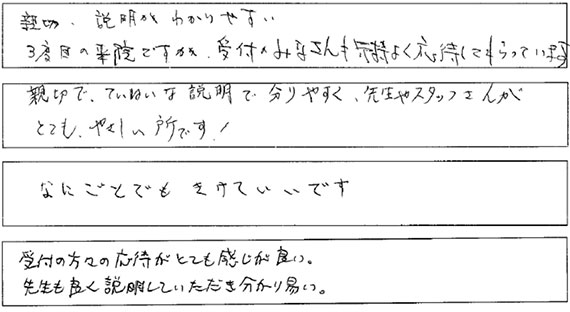 親切、説明がわかりやすい
3度目の来院ですが、受付のみなさんも気持よく応待してもらっています
親切で、ていねいな説明で分りやすく、先生やスタッフさんが
とても、やさしい所です!
なにごとでもきけていいです
受付の方々の応待がとても感じが良い。
先生も良く説明していただき分かり易い。